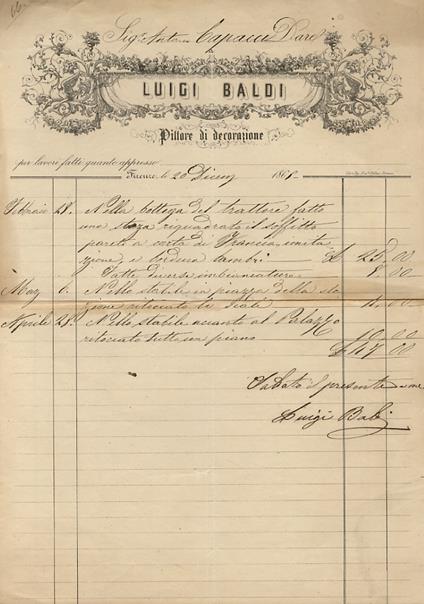 Sig.r Antonio Capacci Dare
LUIGI BALDI
Pittore di decorazione
per lavori fatti quanto appresso
Firenze, li 20 Dicem 186
Febbraio 18. Nella bottega del trattore fatto
una stanza riquadrata il soffitto
pareti a carta di Francia,
e bordura £ 25,00
Fatte diverse imbiancature 8 00
Mag 6. Nello stabile in piazza della sta
zione ritoccato 4 00
Aprile 21. Nello stabile accanto al Palazzo
ritoccato tutto un piano 10 00
£ 47 00
Saldato il presente me
Luigi Baldi